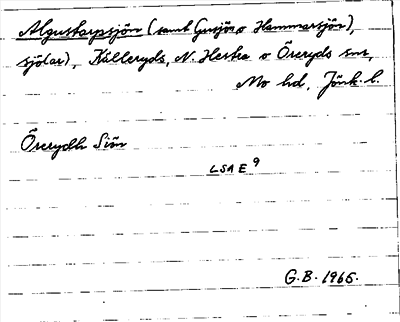 Algustorpsjön (samt Gusjö o Hammarsjön),
sjölar), Källeryds, N. Hestra o Öreryds snr,
Mo hd, Jönk. l.
Örerydh Siön
LSA E 9
G.B. 1965.